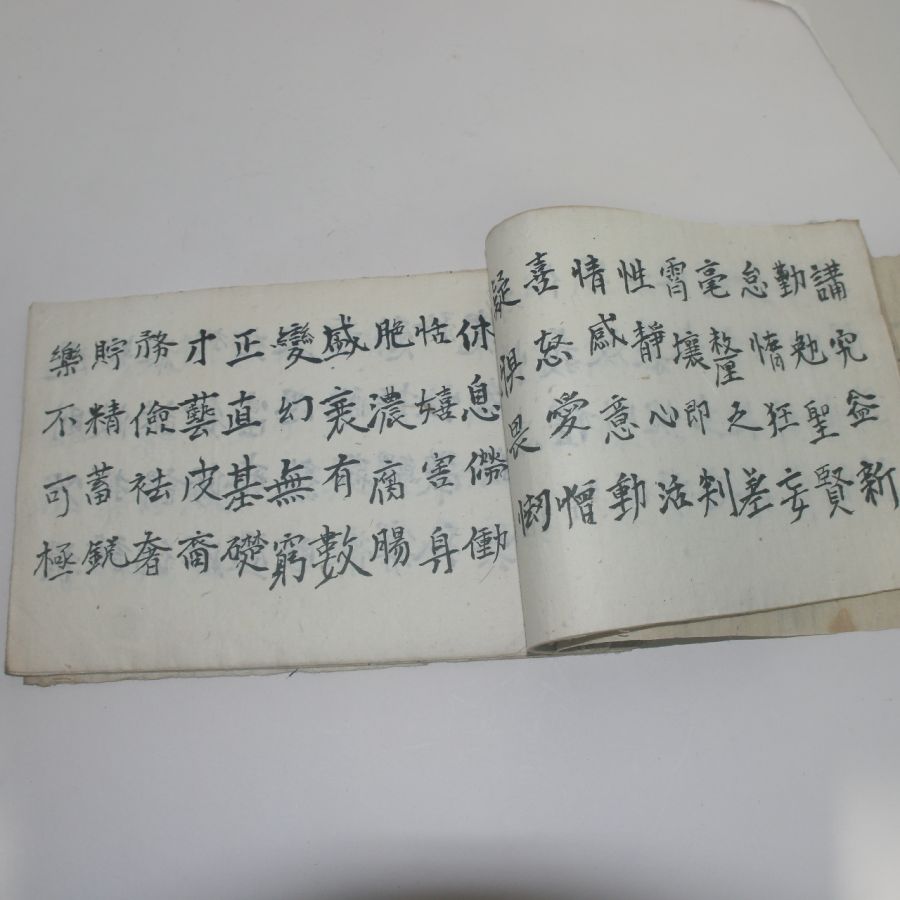 講究益新
勤勉聖賢
怠惰狂妄
毫釐之差
霄壤即判
性靜心活
情感意動
喜怒愛憎
疑惧畏
休息僗働
恬嬉害身
肥濃腐腸
盛衰有數
變幻無窮
正直基礎
才藝皮裔
務儉祛奢
貯精蓄銳
樂不可極